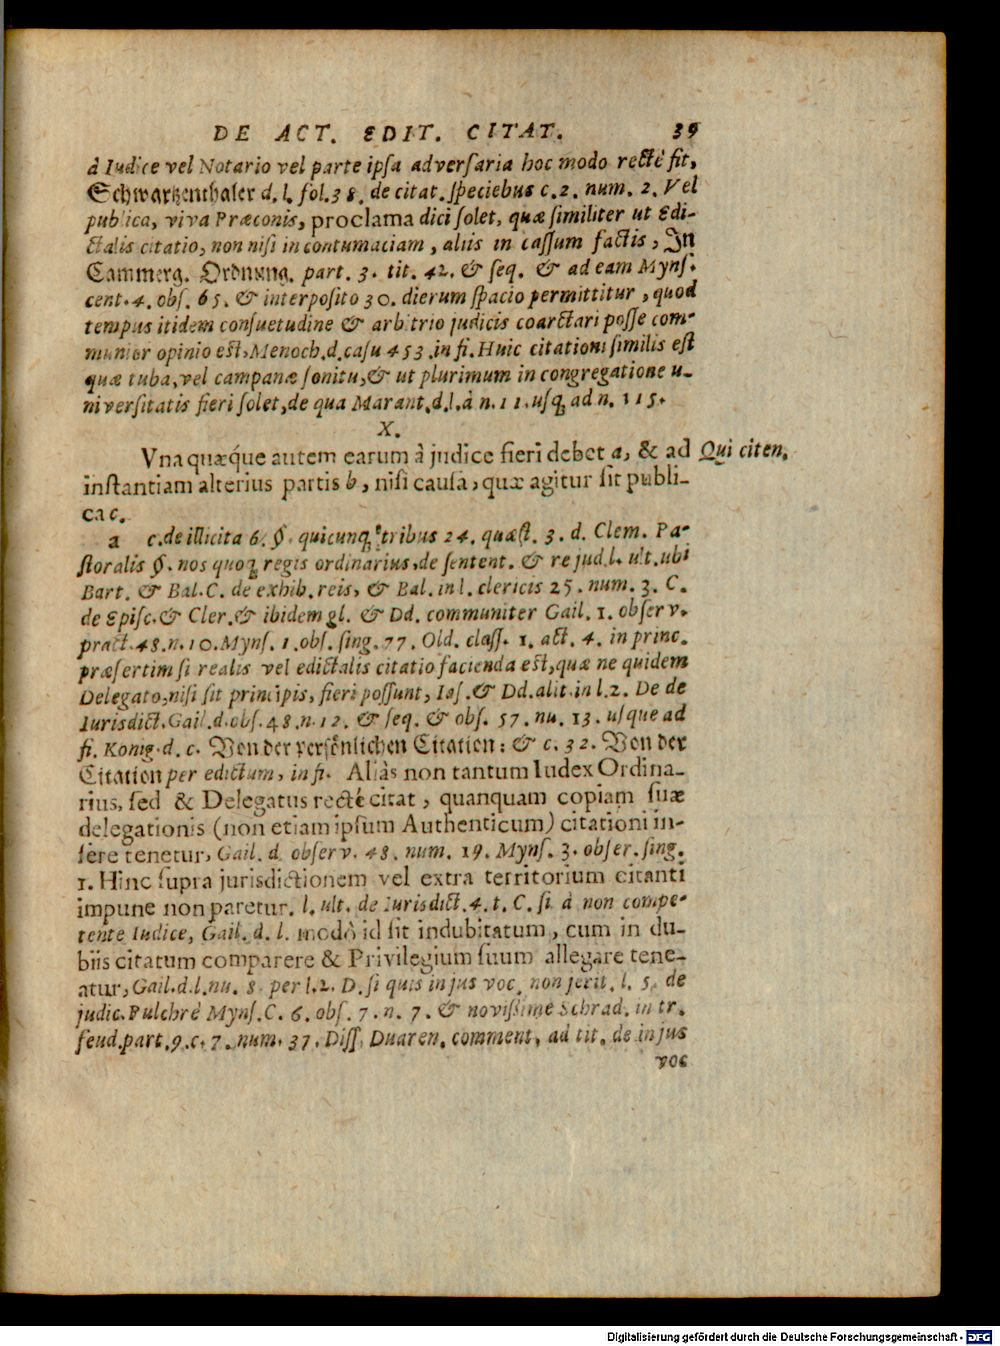 DE ACT. EDIT. CITAT. 39
à Iudice vel Notario vel parte ipsa adversaria hoc modo rectè fit,
Schwartzenthaler d. l. fol. 38. de citat. speciebus c. 2. num. 2. Vel
publica, viva Præconis, proclama dici solet, quæ similiter ut Edi-
ctalis citatio, non nisi in contumaciam, aliis in cassum factis, In
Cammerg. Ordnung. part. 3. tit. 42. & seq. & ad eam Myns.
cent. 4. obs. 65. & interposito 30. dierum spacio permittitur, quod
tempus itidem consuetudine & arbitrio judicis coarctari posse com-
munior opinio est, Menoch. d. casu 453. in fi. Huic citationi similis est
quæ tuba, vel campanæ sonitu, & ut plurimum in congregatione u-
niversitatis fieri solet, de qua Marant. d. l. à n. 11. usq; ad n. 115.
X.
Vnaquæque autem earum à judice fieri debet a, & ad
Qui citen.
instantiam alterius partis b, nisi causa, quæ agitur sit publi-
ca c.
a c. de illicita 6. §. quicunq; tribus 24. quæst. 3. d. Clem. Pa-
storalis §. nos quoq; regis ordinarius, de sentent. & re jud. l. ult. ubi
Bart. & Bal. C. de exhib. reis, & Bal. in l. clericis 25. num. 3. C.
de Episc. & Cler. & ibidem gl. & Dd. communiter Gail. 1. observ.
pract. 48. n. 10. Myns. 1. obs. sing. 77. Old. class. 1. act. 4. in princ.
præsertim si realis vel edictalis citatio facienda est, quæ ne quidem
Delegato, nisi sit principis, fieri possunt, Ias. & Dd. alit. in l. 2. De de
Iurisdict. Gail. d. obs. 48. n. 12. & seq. & obs. 57. nu. 13. usque ad
fi. Konig. d. c. Von der persönlichen Citation: & c. 32. Von der
Citation per edictum, in fi. Aliàs non tantum Iudex Ordina-
rius, sed & Delegatus rectè citat, quanquam copiam suæ
delegationis (non etiam ipsum Authenticum) citationi in-
serere tenetur, Gail. d. observ. 48. num. 19. Myns. 3. obser. sing.
1. Hinc supra jurisdictionem vel extra territorium citanti
impune non paretur. l. ult. de Iurisdict. 4. t. C. si à non compe-
tente Iudice, Gail. d. l. modò id sit indubitatum, cum in du-
biis citatum comparere & Privilegium suum allegare tene-
atur, Gail. d. l. nu. 8. per l. 2. D. si quis in jus voc. non jerit. l. 5. de
judic. Pulchrè Myns. C. 6. obs. 7. n. 7. & novissime Schrad. in tr.
feud. part. 9. c. 7. num. 37. Diss. Duaren. comment. ad tit. de in jus
voc
Digitalisierung gefördert durch die Deutsche Forschungsgemeinschaft - DFG